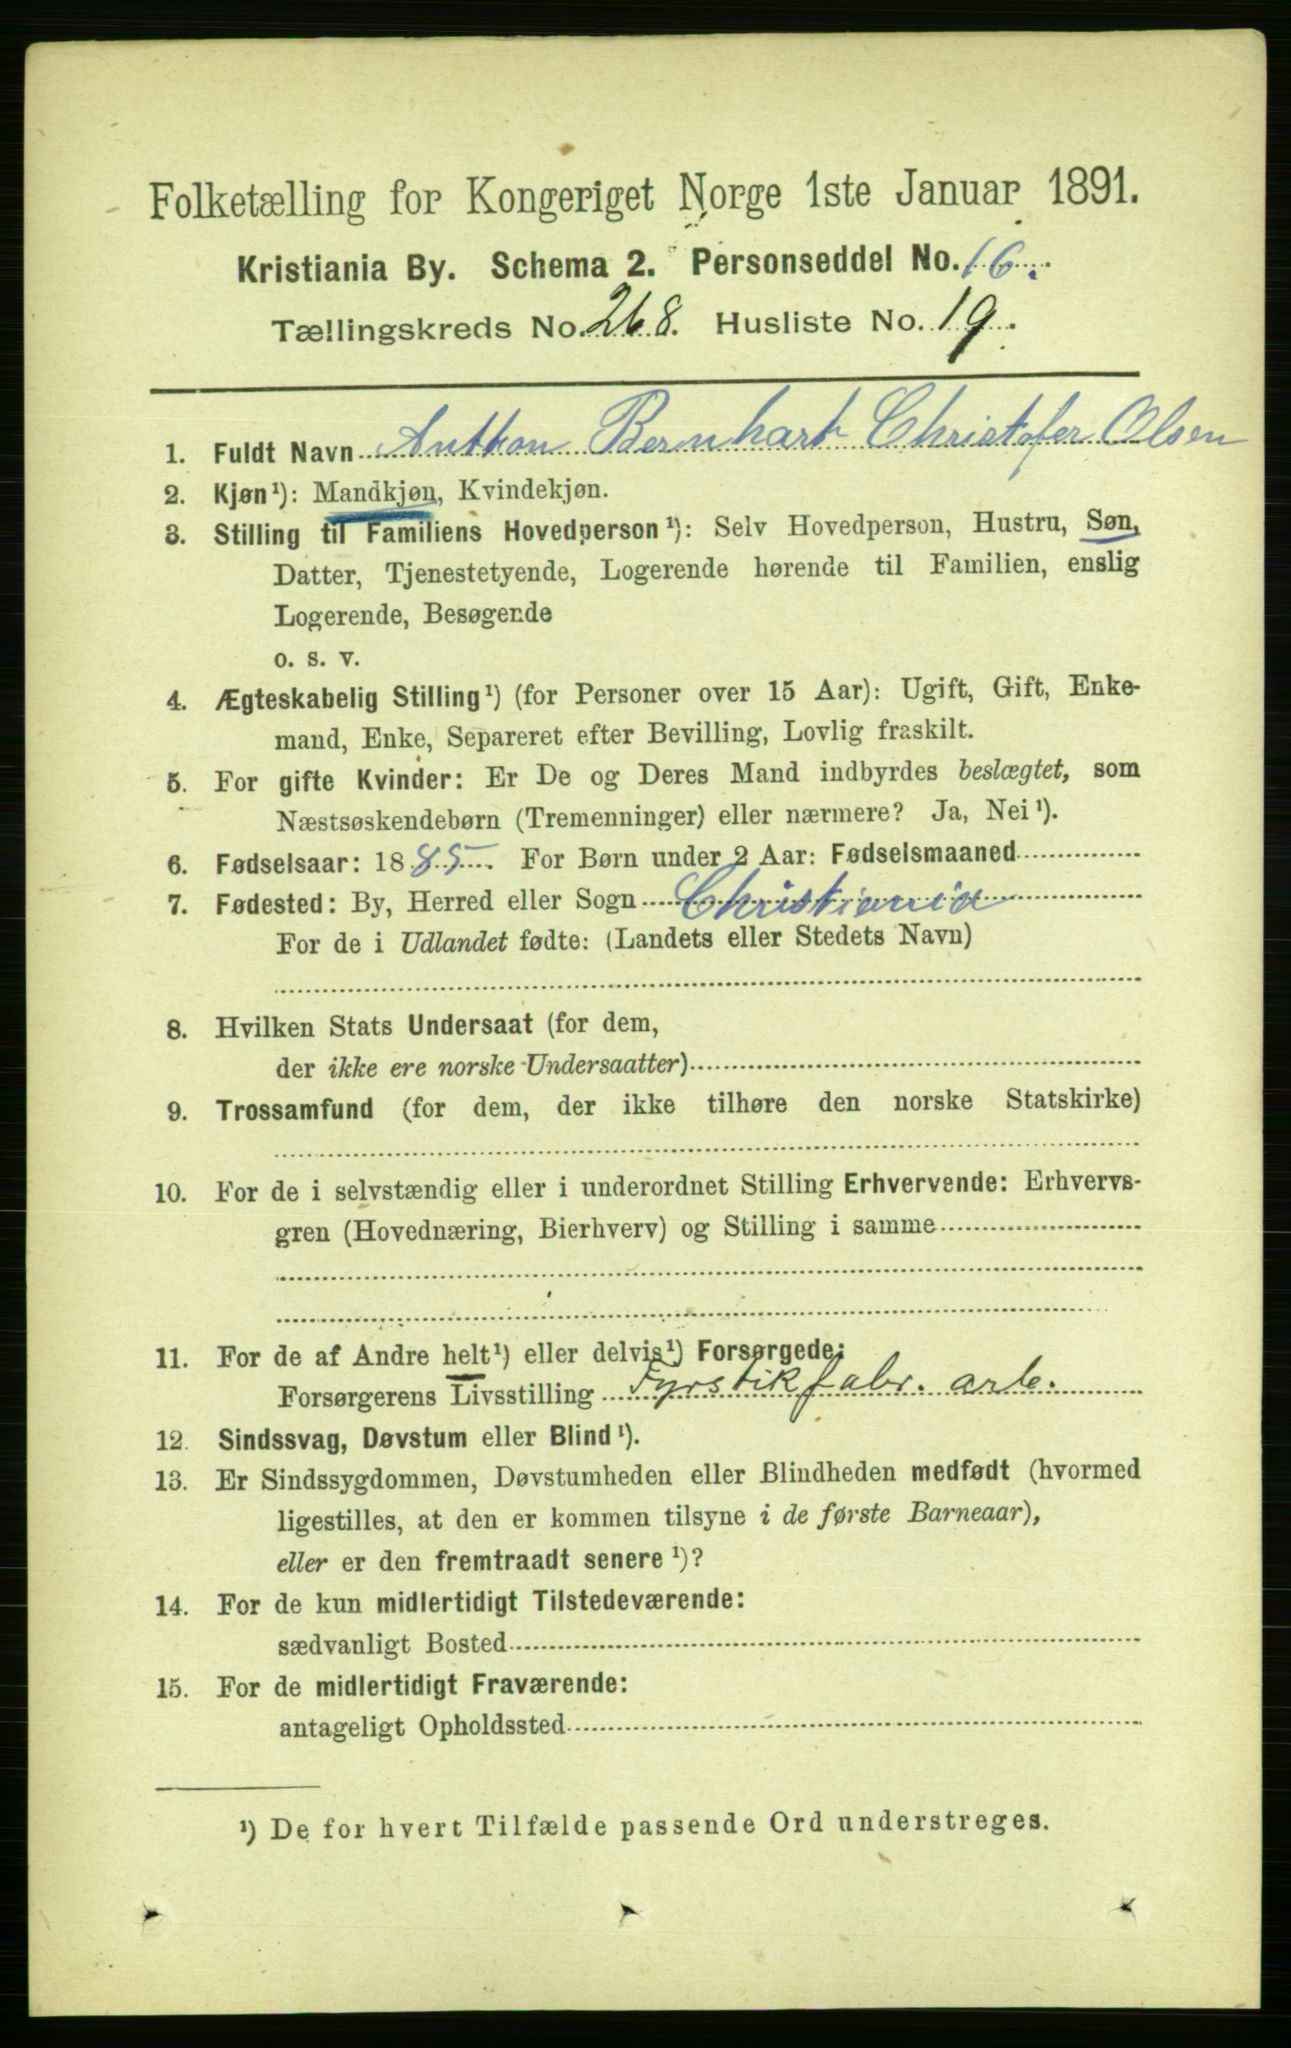 Folketælling for Kongeriget Norge 1ste Januar 1891.
Kristiania By. Schema 2. Personseddel No. 16.
Tællingskreds No. 268. Husliste No. 19.
1. Fuldt Navn Anthon Bernhart Christofer Olsen
2. Kjøn¹): Mandkjøn, Kvindekjøn.
3. Stilling til Familiens Hovedperson¹): Selv Hovedperson, Hustru, Søn,
Datter, Tjenestetyende, Logerende hørende til Familien, enslig
Logerende, Besøgende
o. s. v.
4. Ægteskabelig Stilling¹) (for Personer over 15 Aar): Ugift, Gift, Enke-
mand, Enke, Separeret efter Bevilling, Lovlig fraskilt.
5. For gifte Kvinder: Er De og Deres Mand indbyrdes beslægtet, som
Næstsøskendebørn (Tremenninger) eller nærmere? Ja, Nei¹).
6. Fødselsaar: 1885. For Børn under 2 Aar: Fødselsmaaned
7. Fødested: By, Herred eller Sogn Christiania
For de i Udlandet fødte: (Landets eller Stedets Navn)
8. Hvilken Stats Undersaat (for dem,
der ikke ere norske Undersaatter)
9. Trossamfund (for dem, der ikke tilhøre den norske Statskirke)
10. For de i selvstændig eller i underordnet Stilling Erhvervende: Erhvervs-
gren (Hovednæring, Bierhverv) og Stilling i samme
11. For de af Andre helt¹) eller delvis¹) Forsørgede:
Forsørgerens Livsstilling Fyrstikfabr. arb.
12. Sindssvag, Døvstum eller Blind¹).
13. Er Sindssygdommen, Døvstumheden eller Blindheden medfødt (hvormed
ligestilles, at den er kommen tilsyne i de første Barneaar),
eller er den fremtraadt senere¹)?
14. For de kun midlertidigt Tilstedeværende:
sædvanligt Bosted
15. For de midlertidigt Fraværende:
antageligt Opholdssted
¹) De for hvert Tilfælde passende Ord understreges.